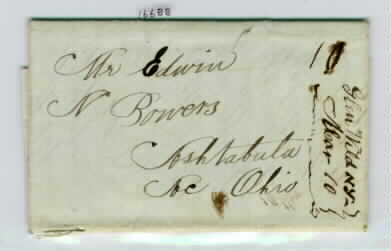 88991
Mr Edwin
N Bowers
Ashtabula
Ac Ohio
10
Glen Wild NY
Mar 10